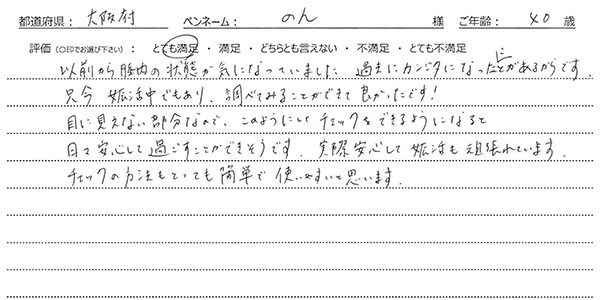 都道府県： 大阪府 ペンネーム： のん 様 ご年齢： 40 歳
評価（○印でお選び下さい）： とても満足 ・ 満足 ・ どちらとも言えない ・ 不満足 ・ とても不満足
以前から膣内の状態が気になっていました。過去にカンジダになったことがあるからです。
只今 妊活中でもあり、調べてみることができて良かったです！
目に見えない部分なので、このようにしてチェックをできるようになると
日々安心して過ごすことができそうです。実際安心して妊活も頑張れています。
チェックの方法もとっても簡単で使いやすいと思います。